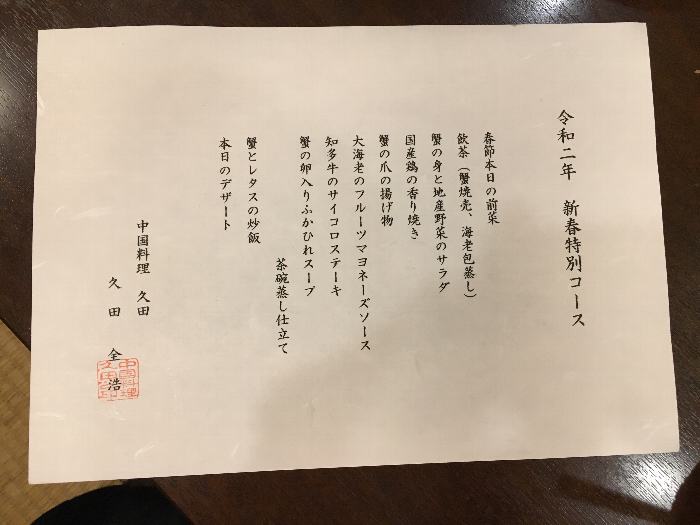 令和二年　新春特別コース
春節本日の前菜
飲茶（蟹焼売、海老包蒸し）
蟹の身と地産野菜のサラダ
国産鶏の香り焼き
蟹の爪の揚げ物
大海老のフルーツマヨネーズソース
知多牛のサイコロステーキ
蟹の卵入りふかひれスープ
茶碗蒸し仕立て
蟹とレタスの炒飯
本日のデザート
中国料理　久田
久田　全浩
中国料理